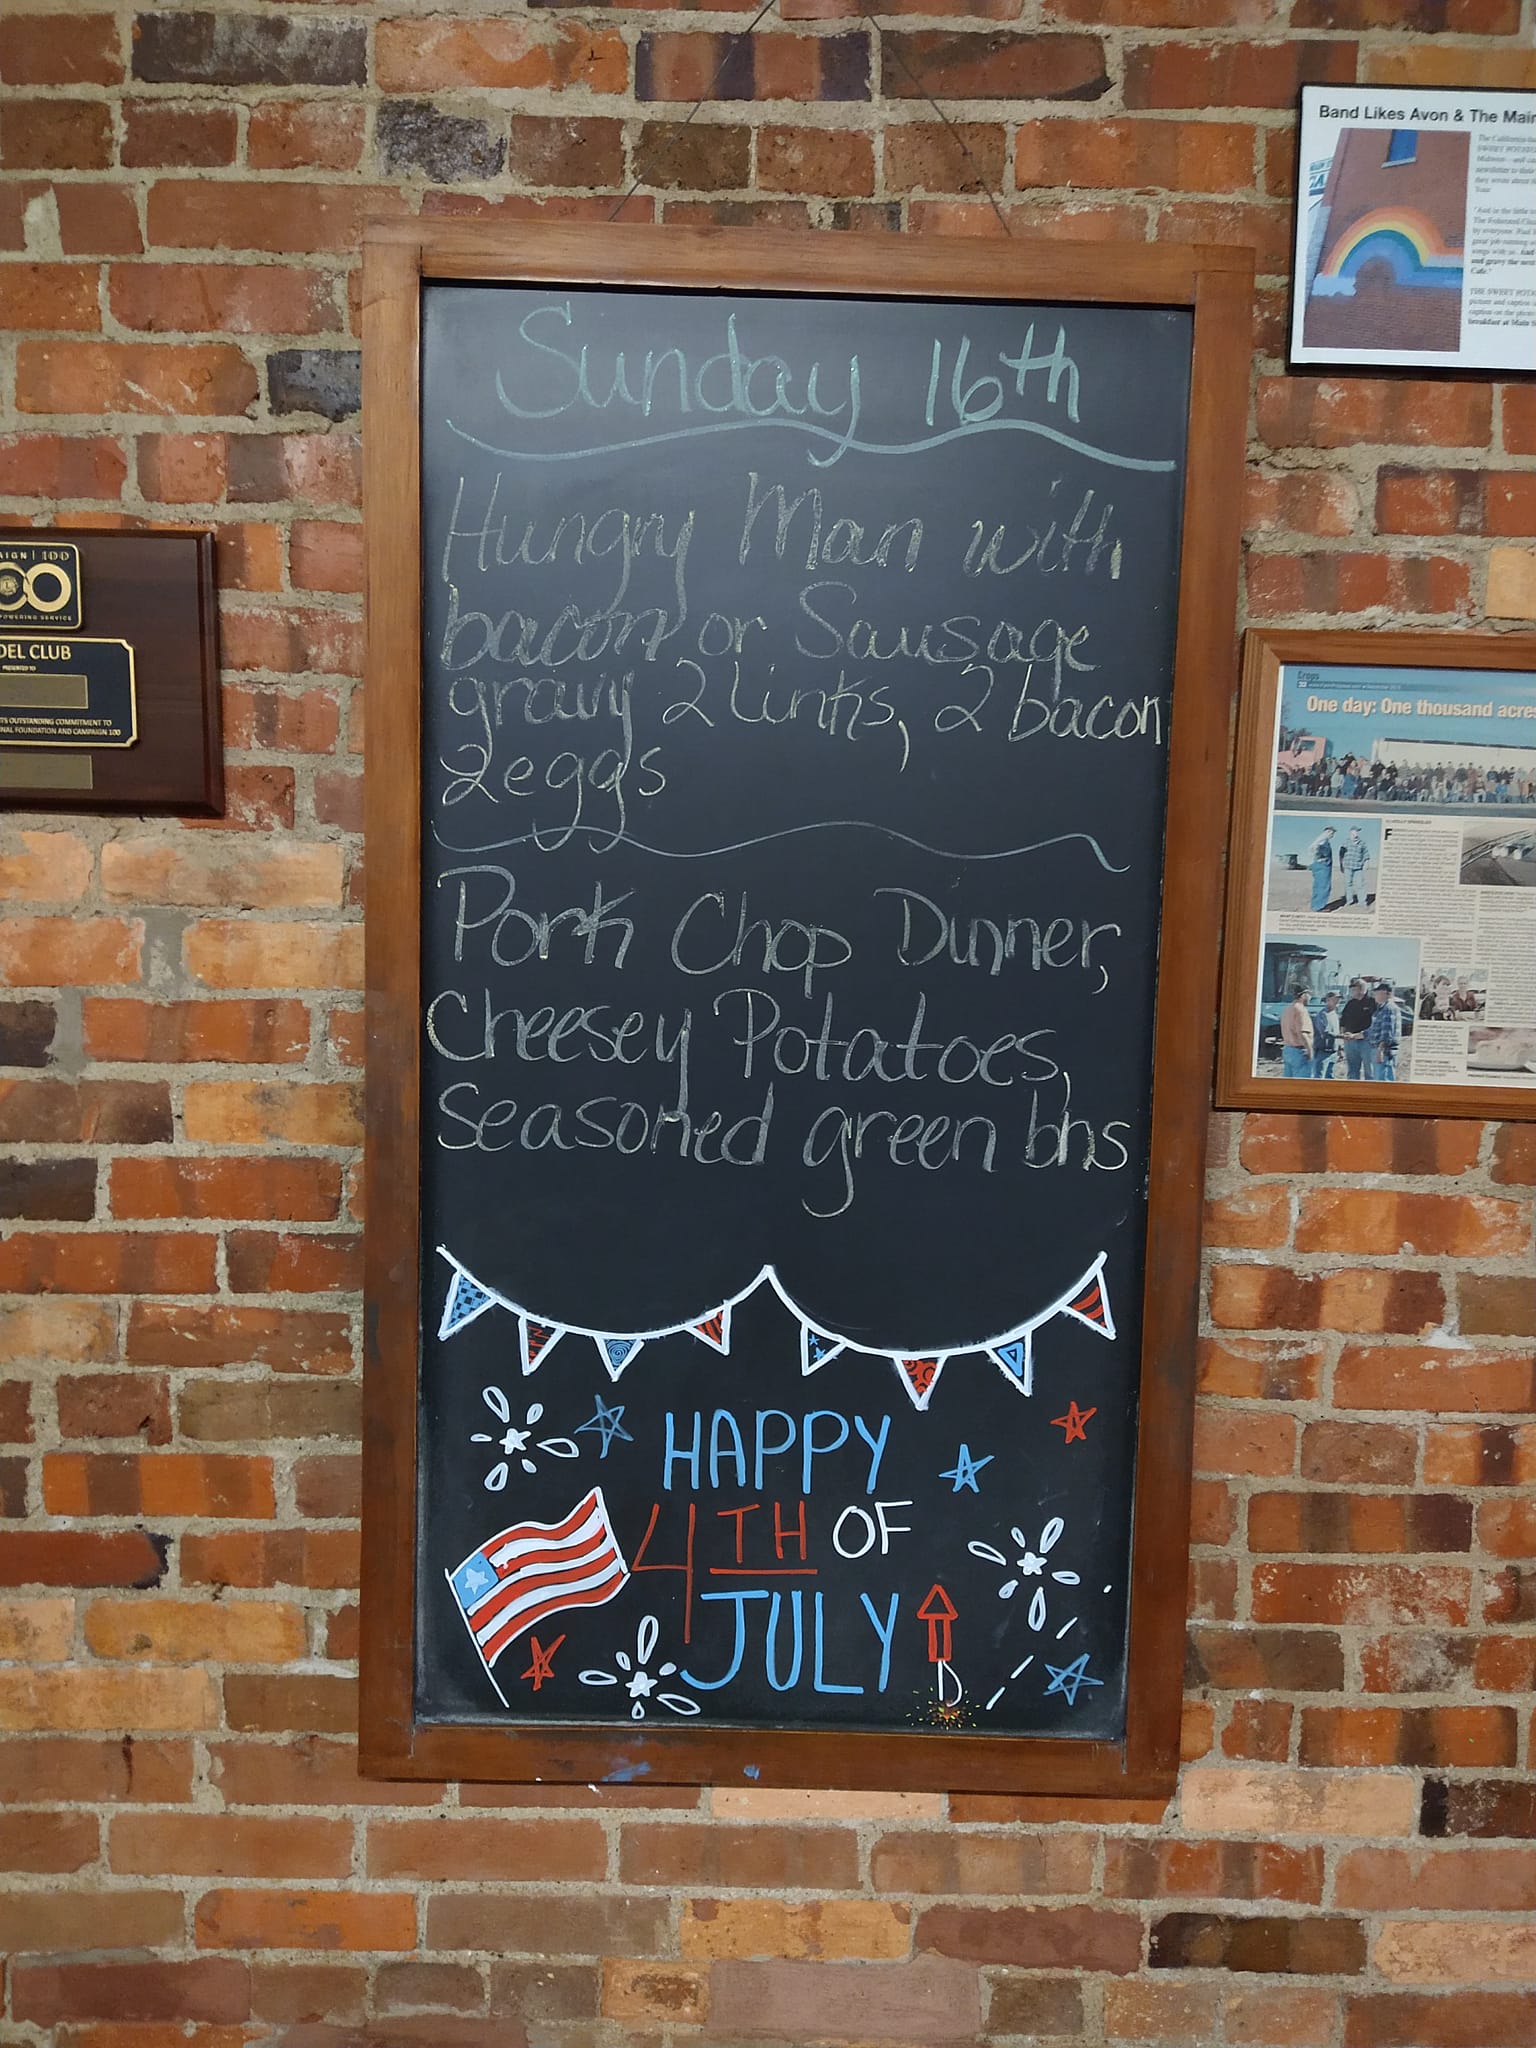 Sunday 16th
Hungry Man with
bacon or Sausage
gravy 2 links, 2 bacon
2 eggs
Pork Chop Dinner,
Cheesey Potatoes,
Seasoned green bns
HAPPY
4TH OF
JULY
AIGN | 100
POWERING SERVICE
DEL CLUB
PRESENTED TO
TS OUTSTANDING COMMITMENT TO
NAL FOUNDATION AND CAMPAIGN 100
Band Likes Avon & The Main
Crops
One day: One thousand acres